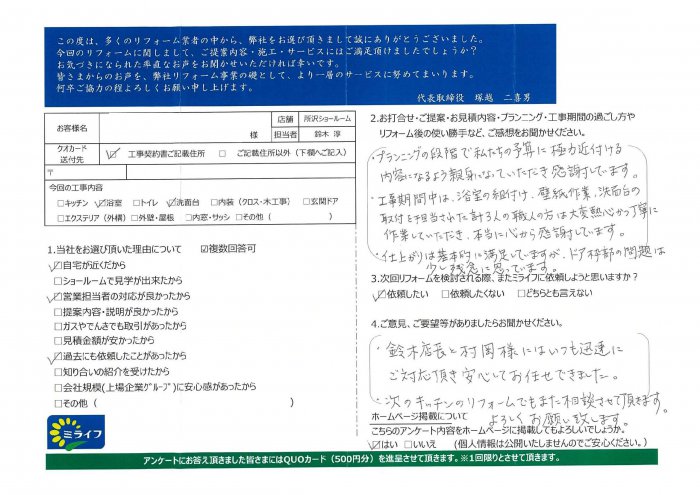 この度は、多くのリフォーム業者の中から、弊社をお選び頂きまして誠にありがとうございました。
今回のリフォームに関しまして、ご提案内容・施工・サービスにはご満足頂けましたでしょうか？
お気づきになられた率直なお声をお聞かせいただければ幸いです。
皆さまからのお声を、弊社リフォーム事業の礎として、より一層のサービスに努めてまいります。
何卒ご協力の程よろしくお願い申し上げます。
代表取締役 塚越 二喜男
お客様名 様 店舗 所沢ショールーム
担当者 鈴木 淳
クオカード送付先 ☑工事契約書ご記載住所 □ご記載住所以外（下欄へご記入）
〒
今回の工事内容
□キッチン ☑浴室 □トイレ ☑洗面台 □内装（クロス・木工事） □玄関ドア
□エクステリア（外構） □外壁・屋根 □内窓・サッシ □その他（ ）
1.当社をお選び頂いた理由について ☑複数回答可
☑自宅が近くだから
□ショールームで見学が出来たから
☑営業担当者の対応が良かったから
□提案内容・説明が良かったから
□ガスやでんきでも取引があったから
□見積金額が安かったから
☑過去にも依頼したことがあったから
□知り合いの紹介を受けたから
□会社規模(上場企業グループ)に安心感があったから
□その他（ ）
ミライフ
2.お打合せ・ご提案・お見積内容・プランニング・工事期間の過ごし方や
リフォーム後の使い勝手など、ご感想をお聞かせください。
・プランニングの段階で私たちの予算に極力近付ける
内容になるよう親身になっていただき感謝しています。
・工事期間中は、浴室の組付け、壁紙作業、洗面台の
取付を担当された計3人の職人の方は大変熱心かつ丁寧に
作業していただき、本当に心から感謝しています。
・仕上がりは基本的に満足していますが、ドア枠部の問題は
少し残念に思っています。
3.次回リフォームを検討される際、またミライフに依頼しようと思いますか？
☑依頼したい □依頼したくない □どちらとも言えない
4.ご意見、ご要望等がありましたらお聞かせください。
・鈴木店長と村岡様にはいつも迅速に
ご対応頂き安心してお任せできました。
・次のキッチンのリフォームでもまた相談させて頂きます。
よろしくお願い致します。
ホームページ掲載について
こちらのアンケート内容をホームページに掲載してもよろしいでしょうか。
☑はい □いいえ （個人情報は公開いたしませんのでご安心ください。）
アンケートにお答え頂きました皆さまにはQUOカード（500円分）を進呈させて頂きます。※1回限りとさせて頂きます。